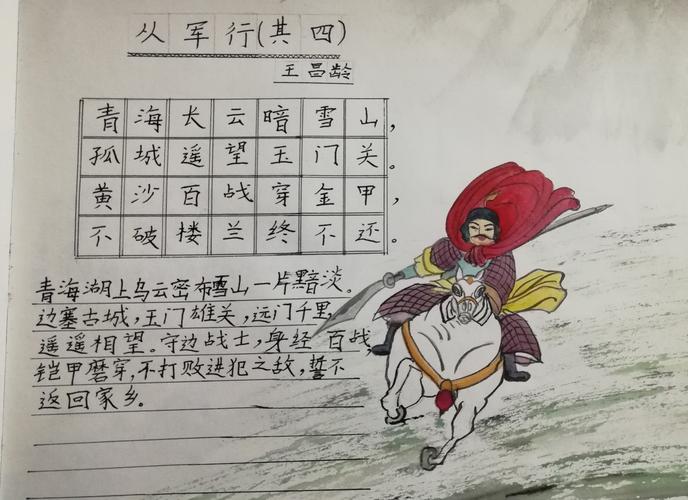 从军行(其四)
王昌龄
青海长云暗雪山，
孤城遥望玉门关。
黄沙百战穿金甲，
不破楼兰终不还。
青海湖上乌云密布雪山一片黯淡。
边塞古城，玉门雄关，远门千里，
遥遥相望。守边战士，身经百战
铠甲磨穿，不打败进犯之敌，誓不
返回家乡。